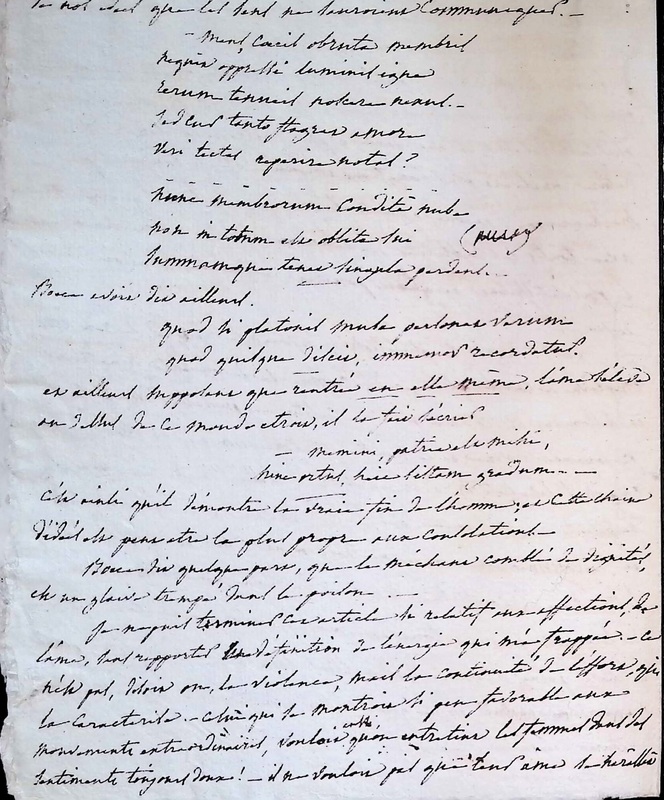 de nos idées que les sens ne sauroient communiquer. —
— mens cœcis obruta membris
nequit oppressi luminis igne
rerum tenues noscere nexus. —
sed cur tanto flagrat amore
veri tectas reperire notas?
nunc membrorum condita nube
non in totum est oblita sui
summamque tenet singula perdens..
Boece avoit dit ailleurs.
quod si platonis musa personat verum
quod quisque discit, immemor recordatur.
et ailleurs supposant que rentrée en elle même, l'ame s'élève
au dessus de ce monde etroit, il la fait s'écrier
— memini, patria est mihi,
hinc ortus, hic sistam gradum - - —
c'est ainsi qu'il démontre la vraie fin de l'homme, et cette chaine
d'idées est peut etre la plus propre aux consolations. —
Boece dit quelque part, que le méchant comblé de dignités,
est un glaive trempé dans le poison
Je ne puis terminer cet article si relatif aux affections, de
l'ame, sans rapporter une définition de l'énergie qui m'a frappée. — ce
n'est pas, disoit on, la violence, mais la continuité de l'effort, qui
la caractérise. — celui qui se montroit si peu favorable aux
mouvements extraordinaires, vouloit qu'on entretint les femmes dans des
sentiments toujours doux! — il ne vouloit pas que